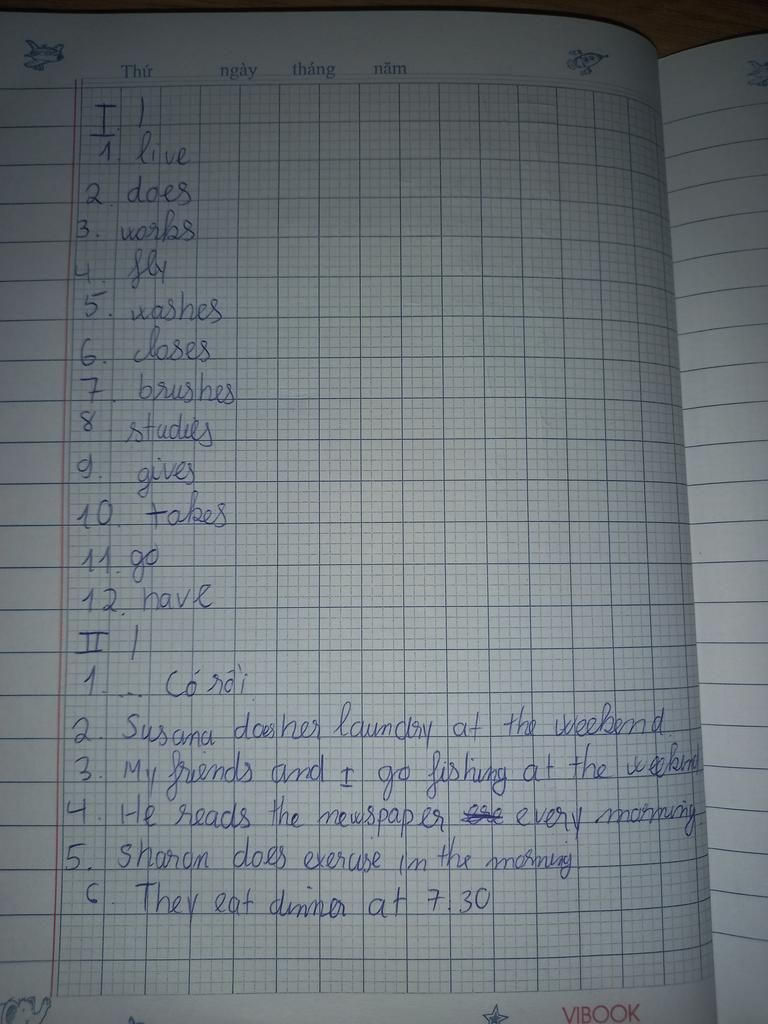 Thứ ngày tháng năm
I /
1. live
2. does
3. works
4. fly
5. washes
6. closes
7. brushes
8 studies
9. gives
10. takes
11. go
12. have
II /
1. ... Có rồi
2. Susana does her laundry at the weekend.
3. My friends and I go fishing at the weekend
4. He reads the newspaper every morning
5. Sharon does exercise in the morning
6 They eat dinner at 7.30
VIBOOK